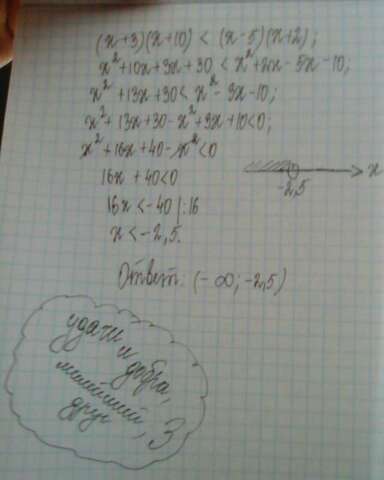 (x+3)(x+10) < (x-5)(x+2);
x²+10x+3x+30 < x²+2x-5x-10;
x²+13x+30 < x²-3x-10;
x²+13x+30-x²+3x+10<0;
x²+16x+40-x²<0
16x+40<0
16x<-40|:16
x<-2,5.
x
-2,5
Ответ: (-∞; -2,5)
удачи
и добра,
милейший
друг, 3